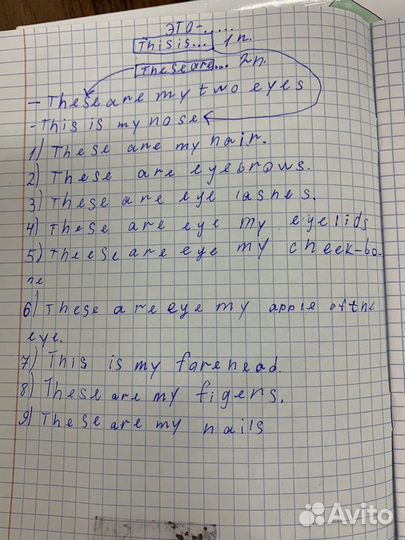 ЭТО-.....
This is... 1 п.
These are... 2 п.
- These are my two eyes
- This is my nose
1) These are my hair.
2) These are eyebrows.
3) These are eye lashes.
4) These are eye my eyelids
5) These are eye my check-bo-
ne
6) These are eye my apple of the
eye.
7) This is my farehead.
8) These are my figers.
9) These are my nails
Avito